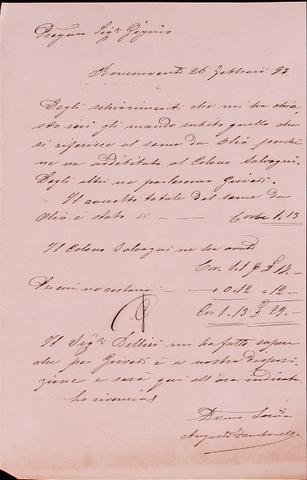 Pregmo Sigr Igino
Benevento 26 Febbraio 93
Degli schiarimenti che mi ha chie-
sto ieri gli mando subito quello che
si riferisce al seme da Olio perchè
ne va addebitato al Colono Salvagni.
Degli altri ne parleremo Giovedì.
Il raccolto totale del seme da
Olio è stato di — — Corbe 1.13
Il Colono Salvagni ne ha avuto
Cor. 1.1
Per cui ne restano — 0.12 " 12 —
Cor 1.13 £ 29. —
Il Sigr Bellisi mi ha fatto sapere
che per Giovedì è a nostra disposi-
zione e sarà qui all'ora indicata
La riverisco
Augusto Zambonelli